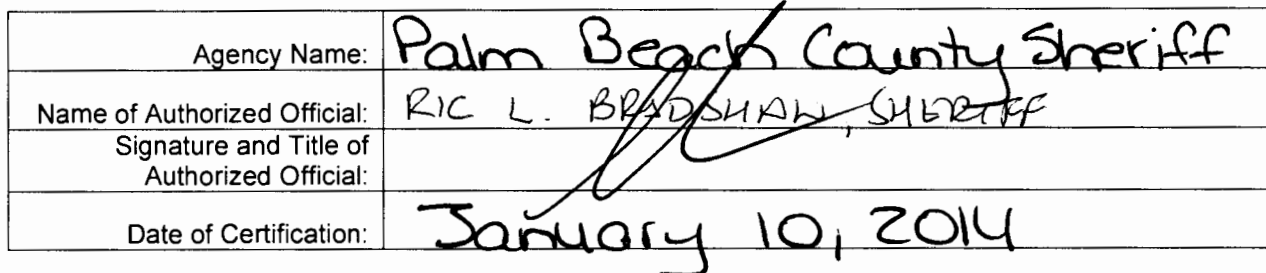 Agency Name: Palm Beach County Sheriff
Name of Authorized Official: RIC L. BRADSHAW, SHERIFF
Signature and Title of
Authorized Official:
Date of Certification: January 10, 2014